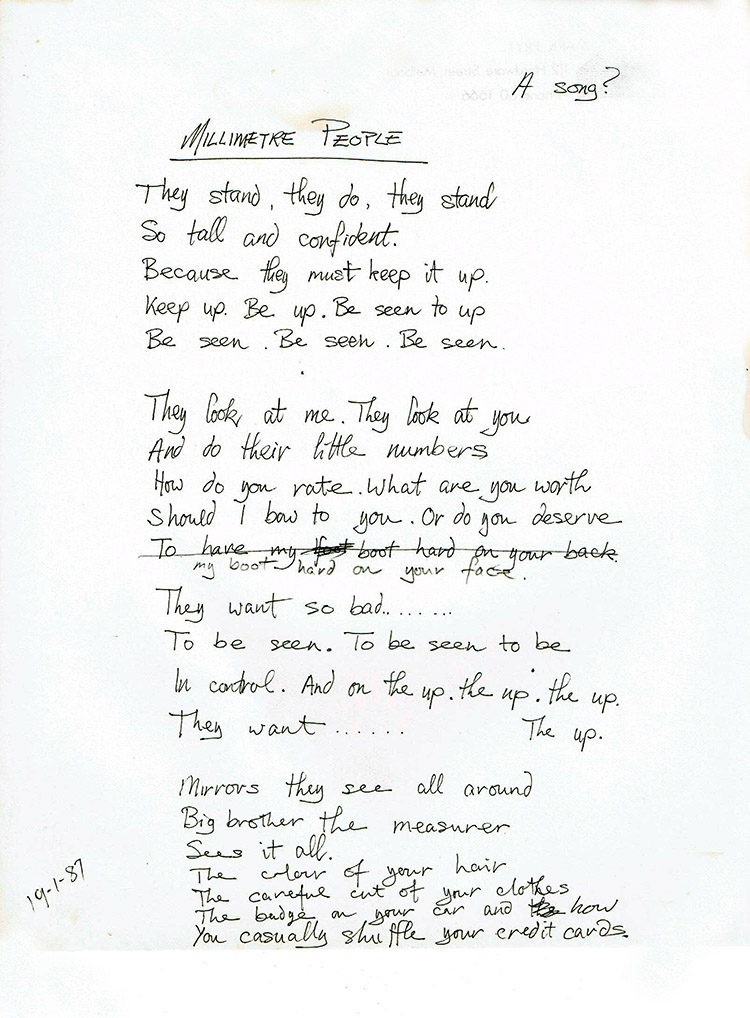 A song?
MILLIMETRE PEOPLE
They stand, they do, they stand
So tall and confident.
Because they must keep it up.
Keep up. Be up. Be seen to up
Be seen. Be seen. Be seen.
They look at me. They look at you
And do their little numbers
How do you rate. What are you worth
Should I bow to you. Or do you deserve
To have my foot boot hard on your back.
my boot hard on your face.
They want so bad.......
To be seen. To be seen to be
In control. And on the up. the up. the up.
They want ...... The up.
Mirrors they see all around
Big brother the measurer
Sees it all.
The colour of your hair
The careful cut of your clothes
The badge on your car and how
You casually shuffle your credit cards.
19-1-87